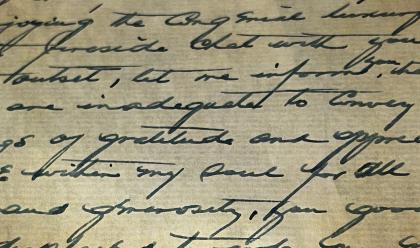 joying the Congenial luxury
fireside chat with you
outset, let me inform you, th
are inadequate to Convey
gs of gratitude and apprec
within my soul for all
and generosity, you